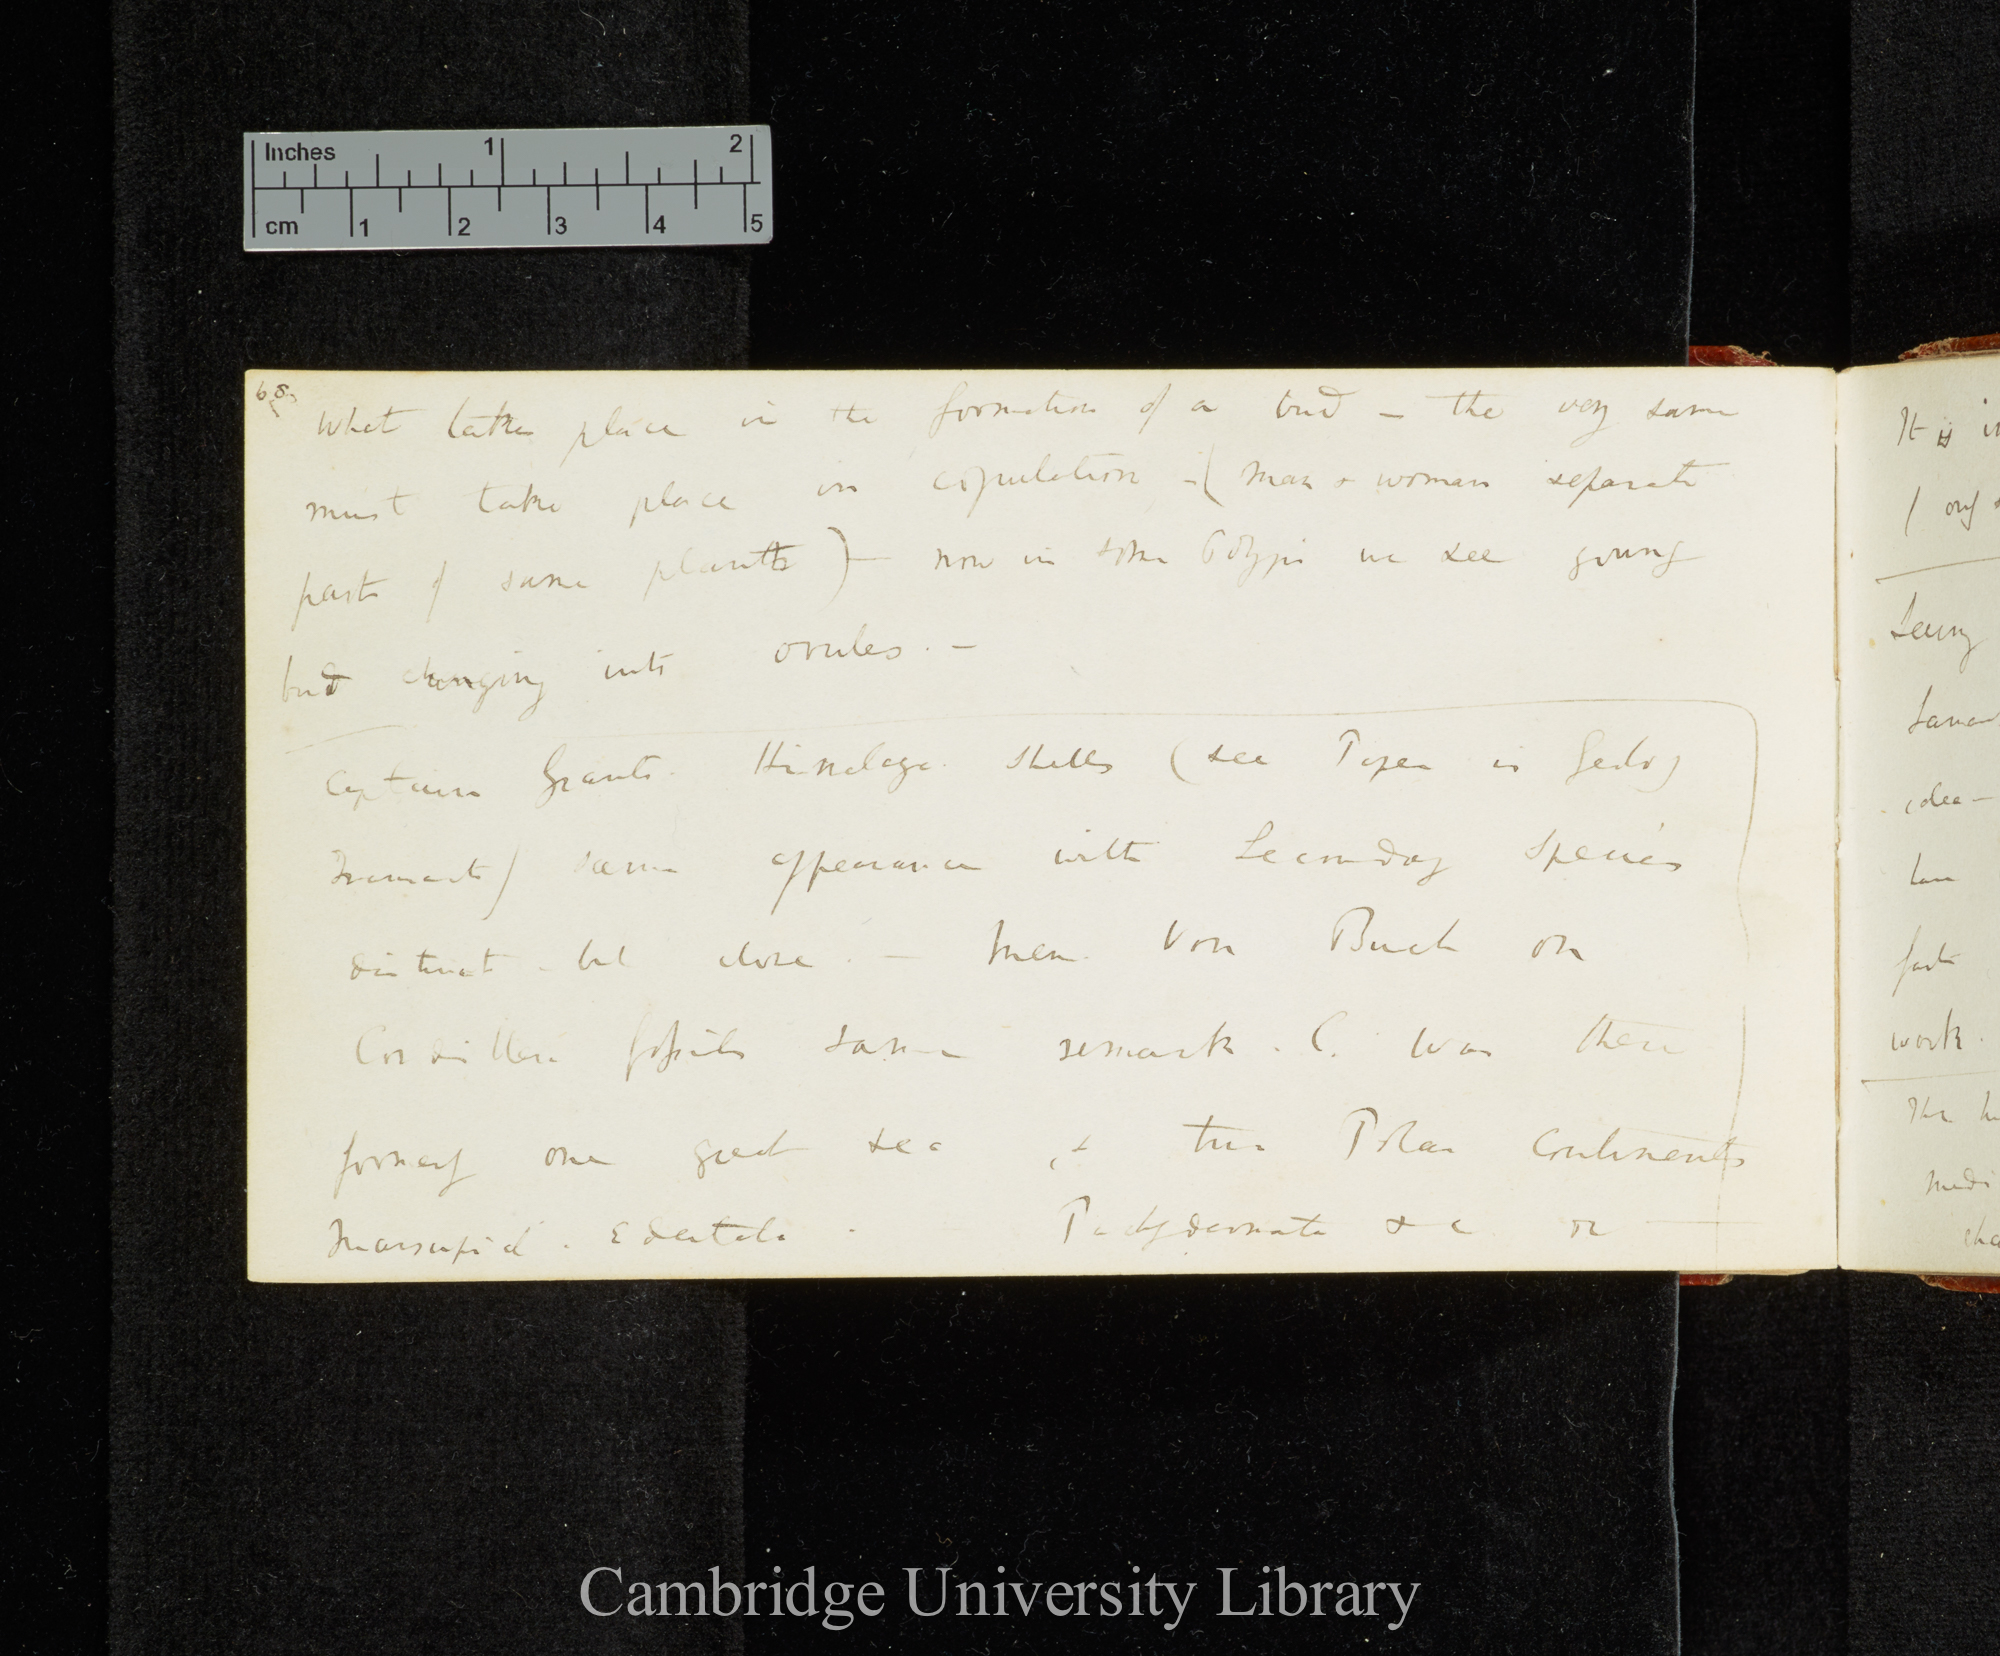 Inches 1 2
cm 1 2 3 4 5
68
What takes place in the formation of a bud — the very same
must take place in copulation — (man & woman separate
parts of same plant) — now in some Polypi we see young
bud changing into ovules. —
Captain Grants. Himalaya. shells (see Paper in Geolog
Transacts) same appearance with Secondary Species
distinct but close. — Mem. Von Buch on
Cordillera fossils same remark. C. Was there
formerly one great sea, & two Polar Continents
Marsupial. Edentata. Pachydermata &c or
It is in
Seeing
idea —
fact
work.
Cambridge University Library